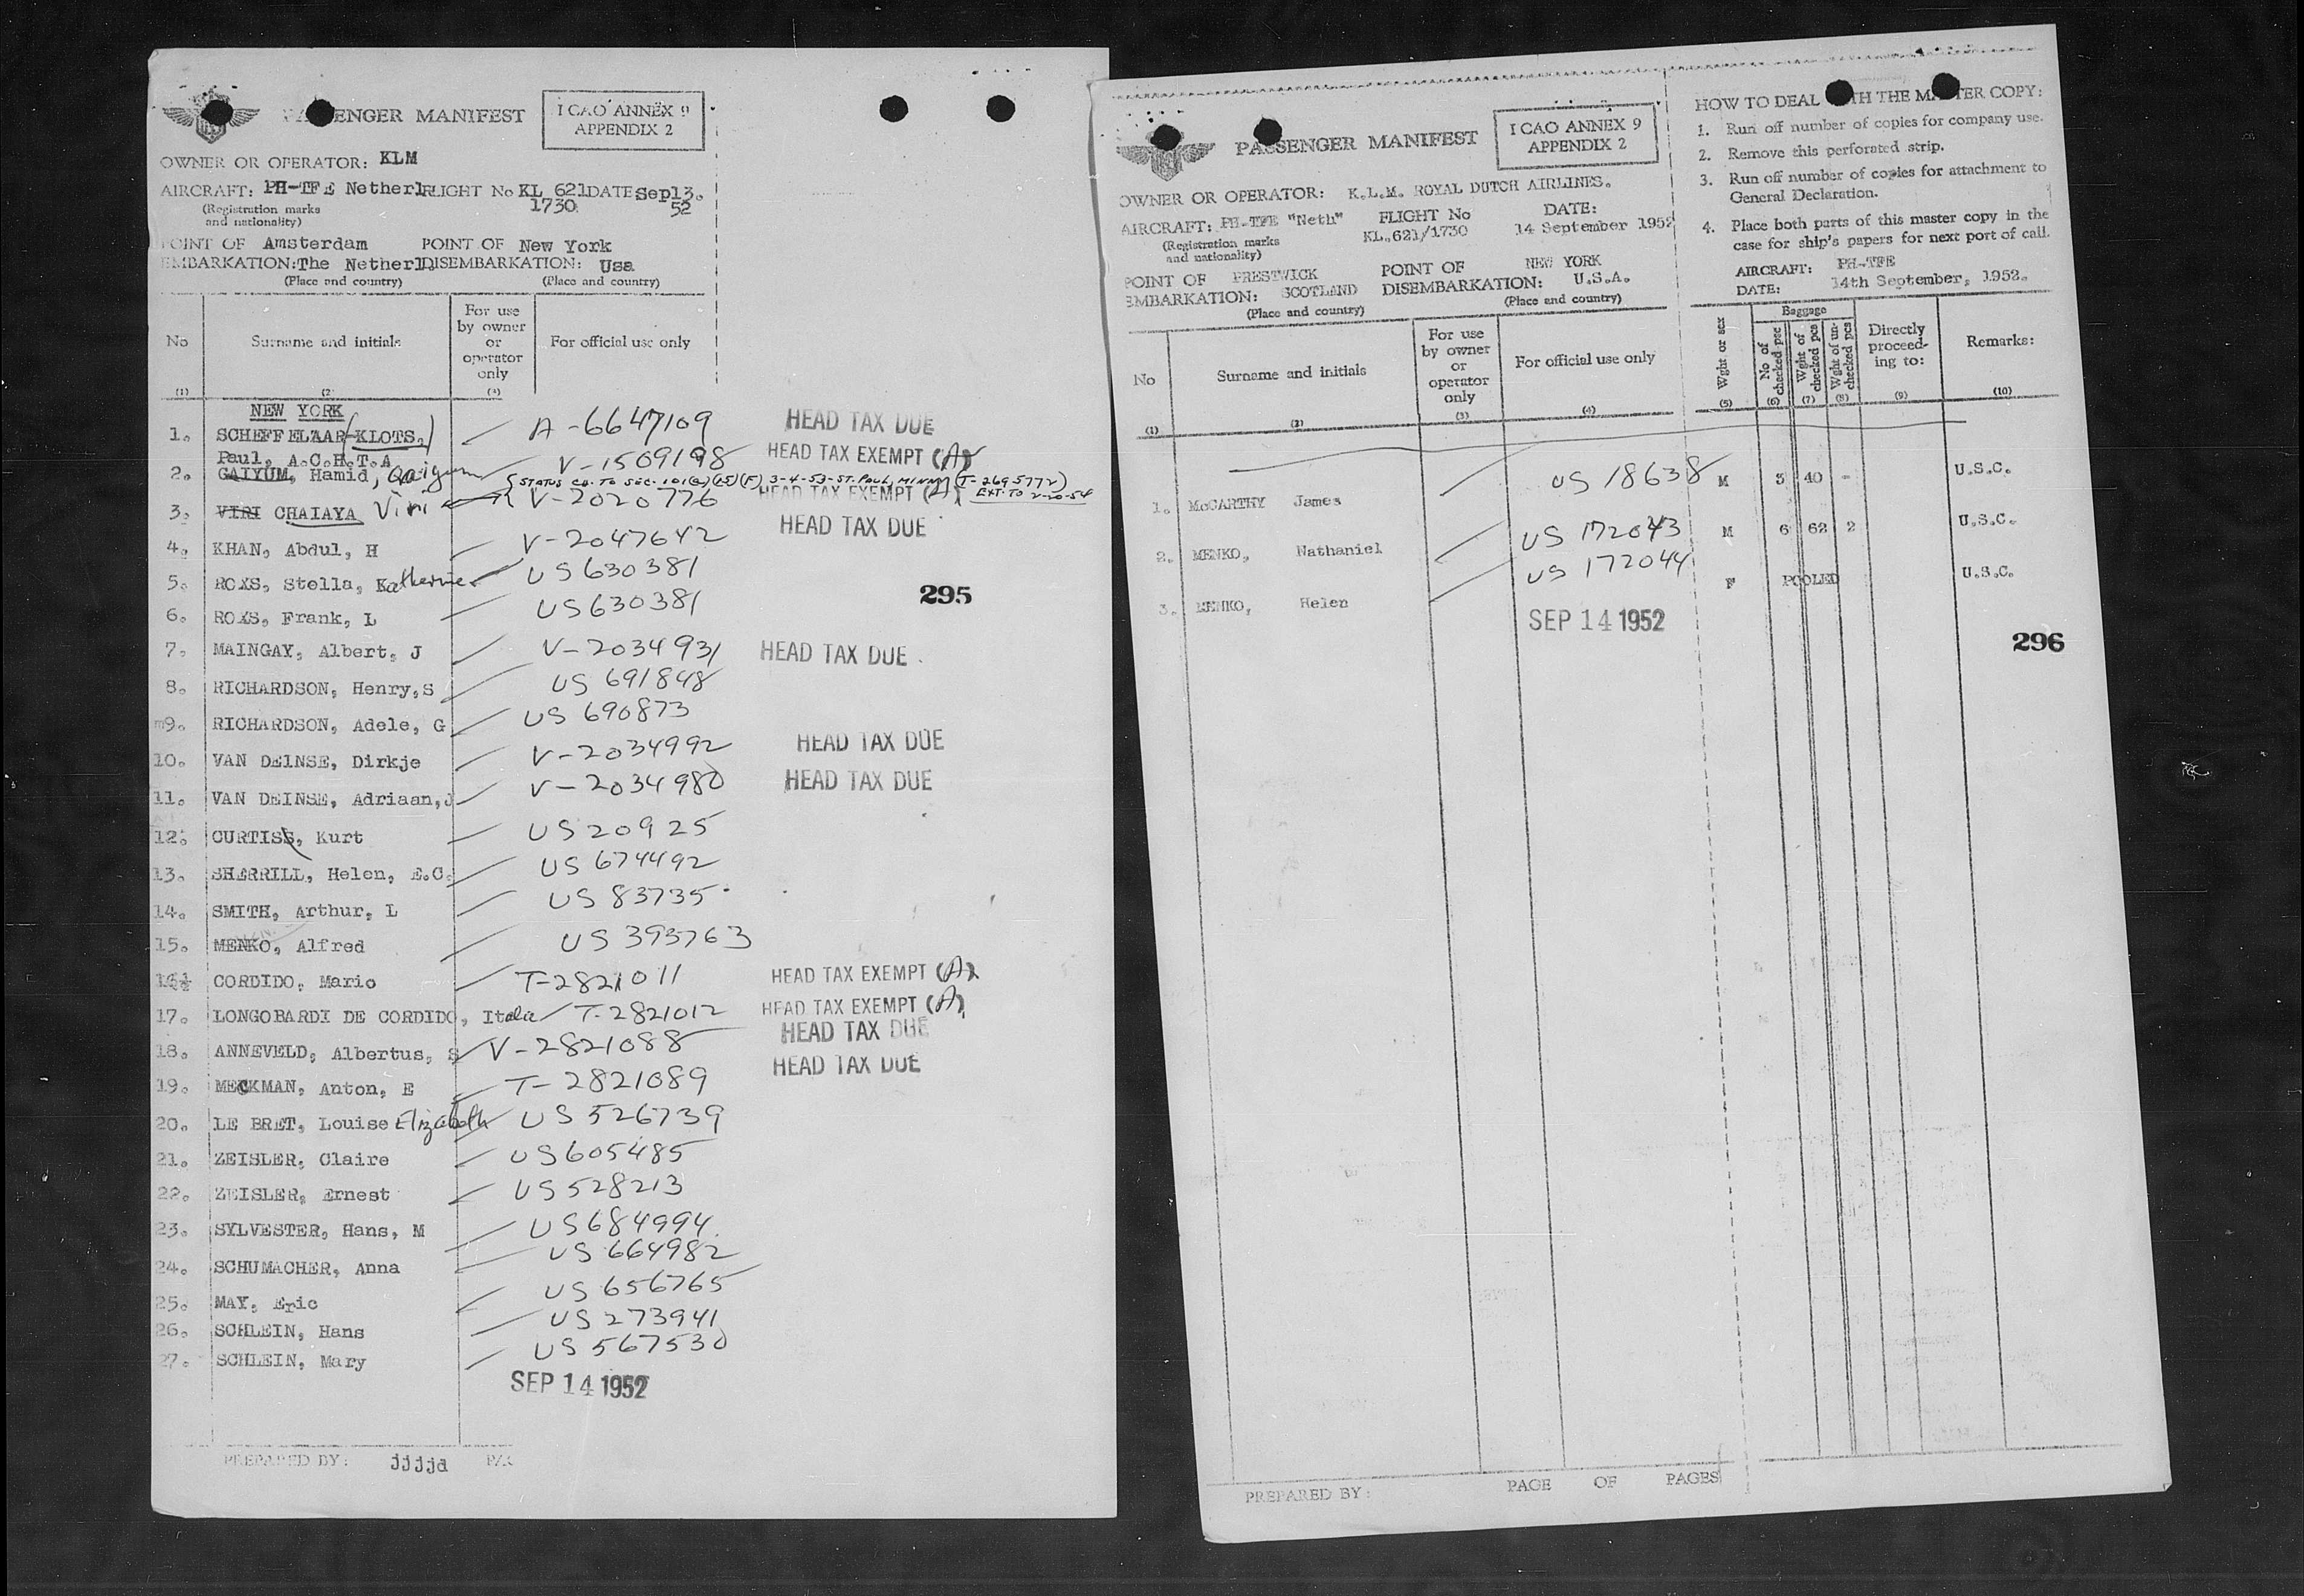 PASSENGER MANIFEST
I CAO ANNEX 9
APPENDIX 2
OWNER OR OPERATOR: KLM
AIRCRAFT: PH-TFE Netherl. FLIGHT No KL 621 DATE Sep13.
(Registration marks 1730 52
and nationality)
POINT OF Amsterdam POINT OF New York
EMBARKATION: The Netherl. DISEMBARKATION: Usa
(Place and country) (Place and country)
No Surname and initials For use by owner or operator only For official use only
(1) (2) (3)
NEW YORK
1. SCHEFFELAAR (KLOTS,) A-6647109 HEAD TAX DUE
Paul, A.C.H.T.A
2. GAIYUM, Hamid, Qaiyum V-1509198 HEAD TAX EXEMPT (A)
(STATUS CG. TO SEC. 101(a)(15)(F) 3-4-53-ST. PAUL, MINN) (T-2695772)
3. VIRI CHAIAYA Viri V-2020776 HEAD TAX EXEMPT (A) EXT. TO 2-20-54
4. KHAN, Abdul, H V-2047642 HEAD TAX DUE
5. ROXS, Stella, Katherine US 630381
295
6. ROXS, Frank, L US 630381
7. MAINGAY, Albert, J V-2034931 HEAD TAX DUE
8. RICHARDSON, Henry,S US 691848
9. RICHARDSON, Adele, G US 690873
10. VAN DEINSE, Dirkje V-2034992 HEAD TAX DUE
11. VAN DEINSE, Adriaan,J V-2034980 HEAD TAX DUE
12. CURTISS, Kurt US 20925
13. SHERRILL, Helen, E.C. US 674492
14. SMITH, Arthur, L US 83735
15. MENKO, Alfred US 393763
16. CORDIDO, Mario T-2821011 HEAD TAX EXEMPT (A)
17. LONGOBARDI DE CORDIDO, Italia T-2821012 HEAD TAX EXEMPT (A)
18. ANNEVELD, Albertus, S V-2821088 HEAD TAX DUE
19. MECKMAN, Anton, E T-2821089 HEAD TAX DUE
20. LE BRET, Louise Elizabeth US 526739
21. ZEISLER, Claire US 605485
22. ZEISLER, Ernest US 528213
23. SYLVESTER, Hans, M US 684994
24. SCHUMACHER, Anna US 664982
25. MAY, Eric US 656765
26. SCHLEIN, Hans US 273941
27. SCHLEIN, Mary US 567530
SEP 14 1952
PREPARED BY: jjjjd
PASSENGER MANIFEST
I CAO ANNEX 9
APPENDIX 2
OWNER OR OPERATOR: K.L.M. ROYAL DUTCH AIRLINES.
AIRCRAFT: PH-TFE "Neth" FLIGHT No DATE:
(Registration marks KL.621/1730 14 September 1952
and nationality)
POINT OF PRESTWICK POINT OF NEW YORK
EMBARKATION: SCOTLAND DISEMBARKATION: U.S.A.
(Place and country) (Place and country)
HOW TO DEAL WITH THE MASTER COPY:
1. Run off number of copies for company use.
2. Remove this perforated strip.
3. Run off number of copies for attachment to
General Declaration.
4. Place both parts of this master copy in the
case for ship's papers for next port of call.
AIRCRAFT: PH-TFE
DATE: 14th September, 1952.
No Surname and initials For use by owner or operator only For official use only Wght or sex Baggage No of checked pcs Wght of checked pcs Wght of un-checked pcs Directly proceed-ing to: Remarks:
(1) (2) (3) (4) (5) (6) (7) (8) (9) (10)
1. McCARTHY James US 18638 M 3 40 - U.S.C.
2. MENKO, Nathaniel US 172043 M 6 62 2 U.S.C.
3. MENKO, Helen US 172044 F POOLED U.S.C.
SEP 14 1952
296
PREPARED BY: PAGE OF PAGES